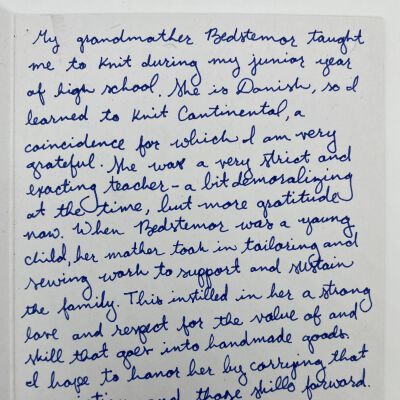 My grandmother Bedstemor taught
me to knit during my junior year
of high school. She is Danish, so I
learned to knit Cantinental, a
coincidence for which I am very
grateful. She was a very strict and
exacting teacher - a bit demoralizing
at the time, but more gratitude
now. When Bedstemor was a young
child, her mother took in tailoring and
sewing work to support and sustain
the family. This instilled in her a strong
love and respect for the value of and
skill that goes into handmade goods.
I hope to honor her by carrying that
and those skills forward.